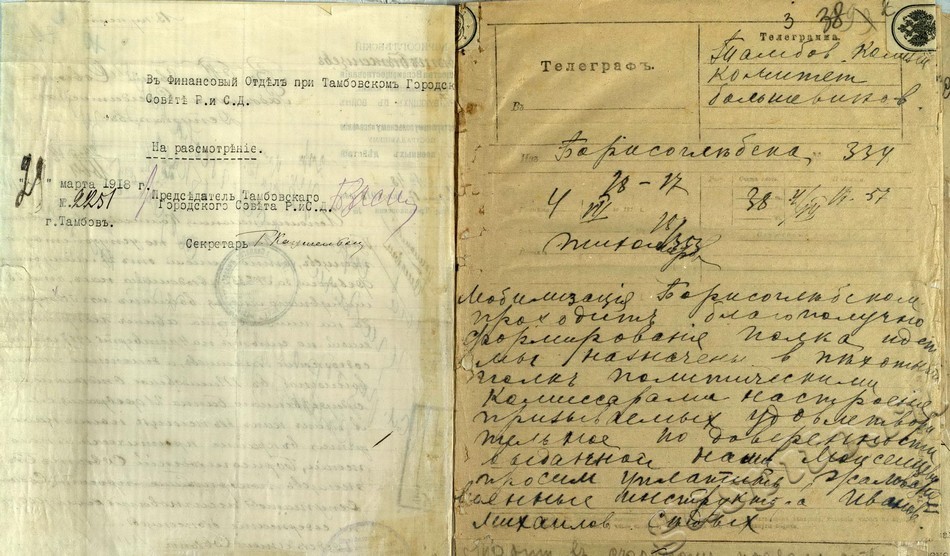 Въ Финансовый Отдѣлъ при Тамбовскомъ Городск
Совѣтѣ Р.и С.Д.
На разсмотрѣніе.
марта 1918 г.
№ 2251
г.Тамбовъ.
Предсѣдатель Тамбовскаго
Городского Совѣта Р.и С.Д.
Секретарь
3 38
Телеграфъ.
Въ
Телеграмма.
Тамбов. Комит
Комитет
большевиков.
Борисоглѣбска 334
28 - 27
Ч VII 38
Мобилизація Борисоглѣбском
проходитъ благополучно
формированіе полка идет
мы назначены в пѣхотный
полкъ политическими
комиссарами настроеніе
призываемых удовлетвори
тельное по доверенности
выданной нами
просим уплатить жалованье
военные инструкт а Иванов
Михаилов Сидых